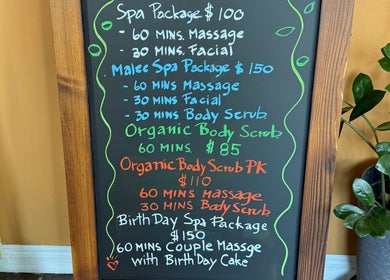 Spa Package $100
- 60 MINS. Massage
- 30 MINS. Facial
Malee Spa Package $150
- 60 MINS Massage
- 30 MINS Facial
- 30 MINS Body Scrub
Organic Body Scrub
60 MINS $85
Organic Body Scrub PK
$110
60 MINS Massage
30 MINS Body Scrub
BirthDay Spa Package
$150
60 MINS Couple Massge
with BirthDay Cake